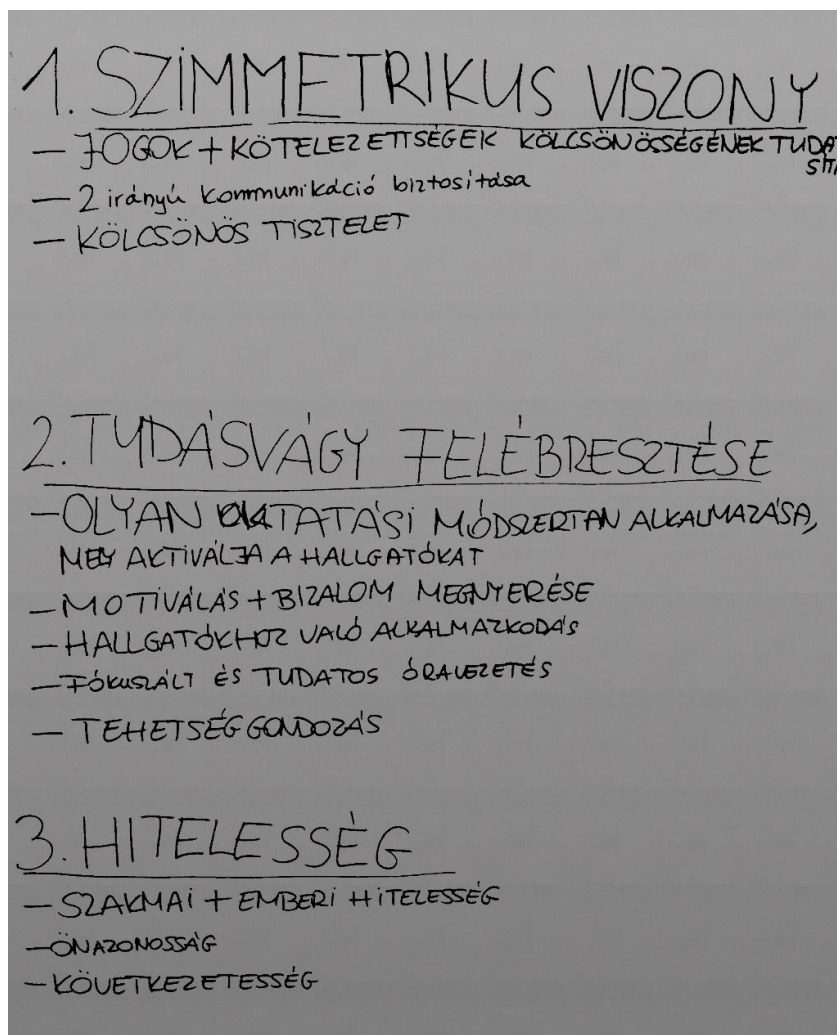 1. SZIMMETRIKUS VISZONY
— JOGOK + KÖTELEZETTSÉGEK KÖLCSÖNÖSSÉGÉNEK
— 2 irányú kommunikáció biztosítása
— KÖLCSÖNÖS TISZTELET
2. TUDÁSVÁGY FELÉBRESZTÉSE
— OLYAN OKTATÁSI MÓDSZERTAN ALKALMAZÁSA,
MELY AKTIVÁLJA A HALLGATÓKAT
— MOTIVÁLÁS + BIZALOM MEGNYERÉSE
— HALLGATÓKHOZ VALÓ ALKALMAZKODÁS
— FÓKUSZÁLT ÉS TUDATOS ÓRAVEZETÉS
— TEHETSÉGGONDOZÁS
3. HITELESSÉG
— SZAKMAI + EMBERI HITELESSÉG
— ÖNAZONOSSÁG
— KÖVETKEZETESSÉG